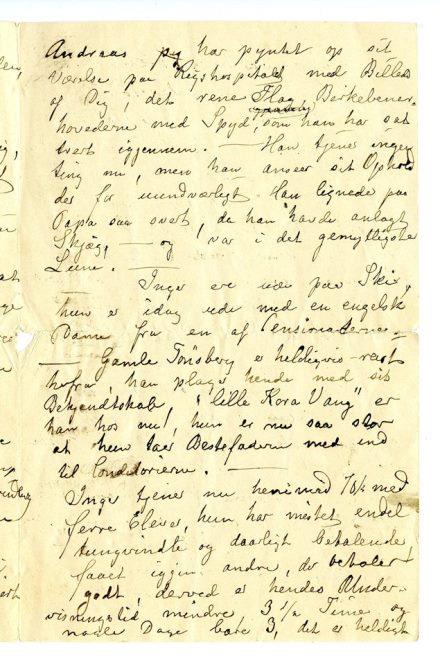 Andreas har pyntet op sit
Værelse paa Rigshospitalet med Billed
af Dig, i det rene Flag, Birkebener-
hovederne med Spyd, som han har sat
tvert igjennem. — Han tjener ingen
ting nu, men han anser sit Ophold
der for uundværligt. Han lignede paa
Papa saa svert, da han havde anlagt
Skjæg, — og var i det gemytligste
Lune. —
Inga er ude paa Ski,
hun er idag ude med en engelsk
Dame fra en af
— Gamle Tönsberg er heldigvis rest
herfra, han plager hende med sit
Bekjendtskab, "lille Kora Vang" er
ham hos nu, hun er nu saa stor
at hun taer Bestefaderen med ind
til Conditorierne. —
Inga tjener nu henimod 70 k med
færre Elever, hun har mistet endel
tungvindte og daarligt betalende
faaet igjen andre, der betaler
godt, derved er hendes Under-
visningstid mindre 3 ½ Time og
nogle Dage bare 3, det er heldigt